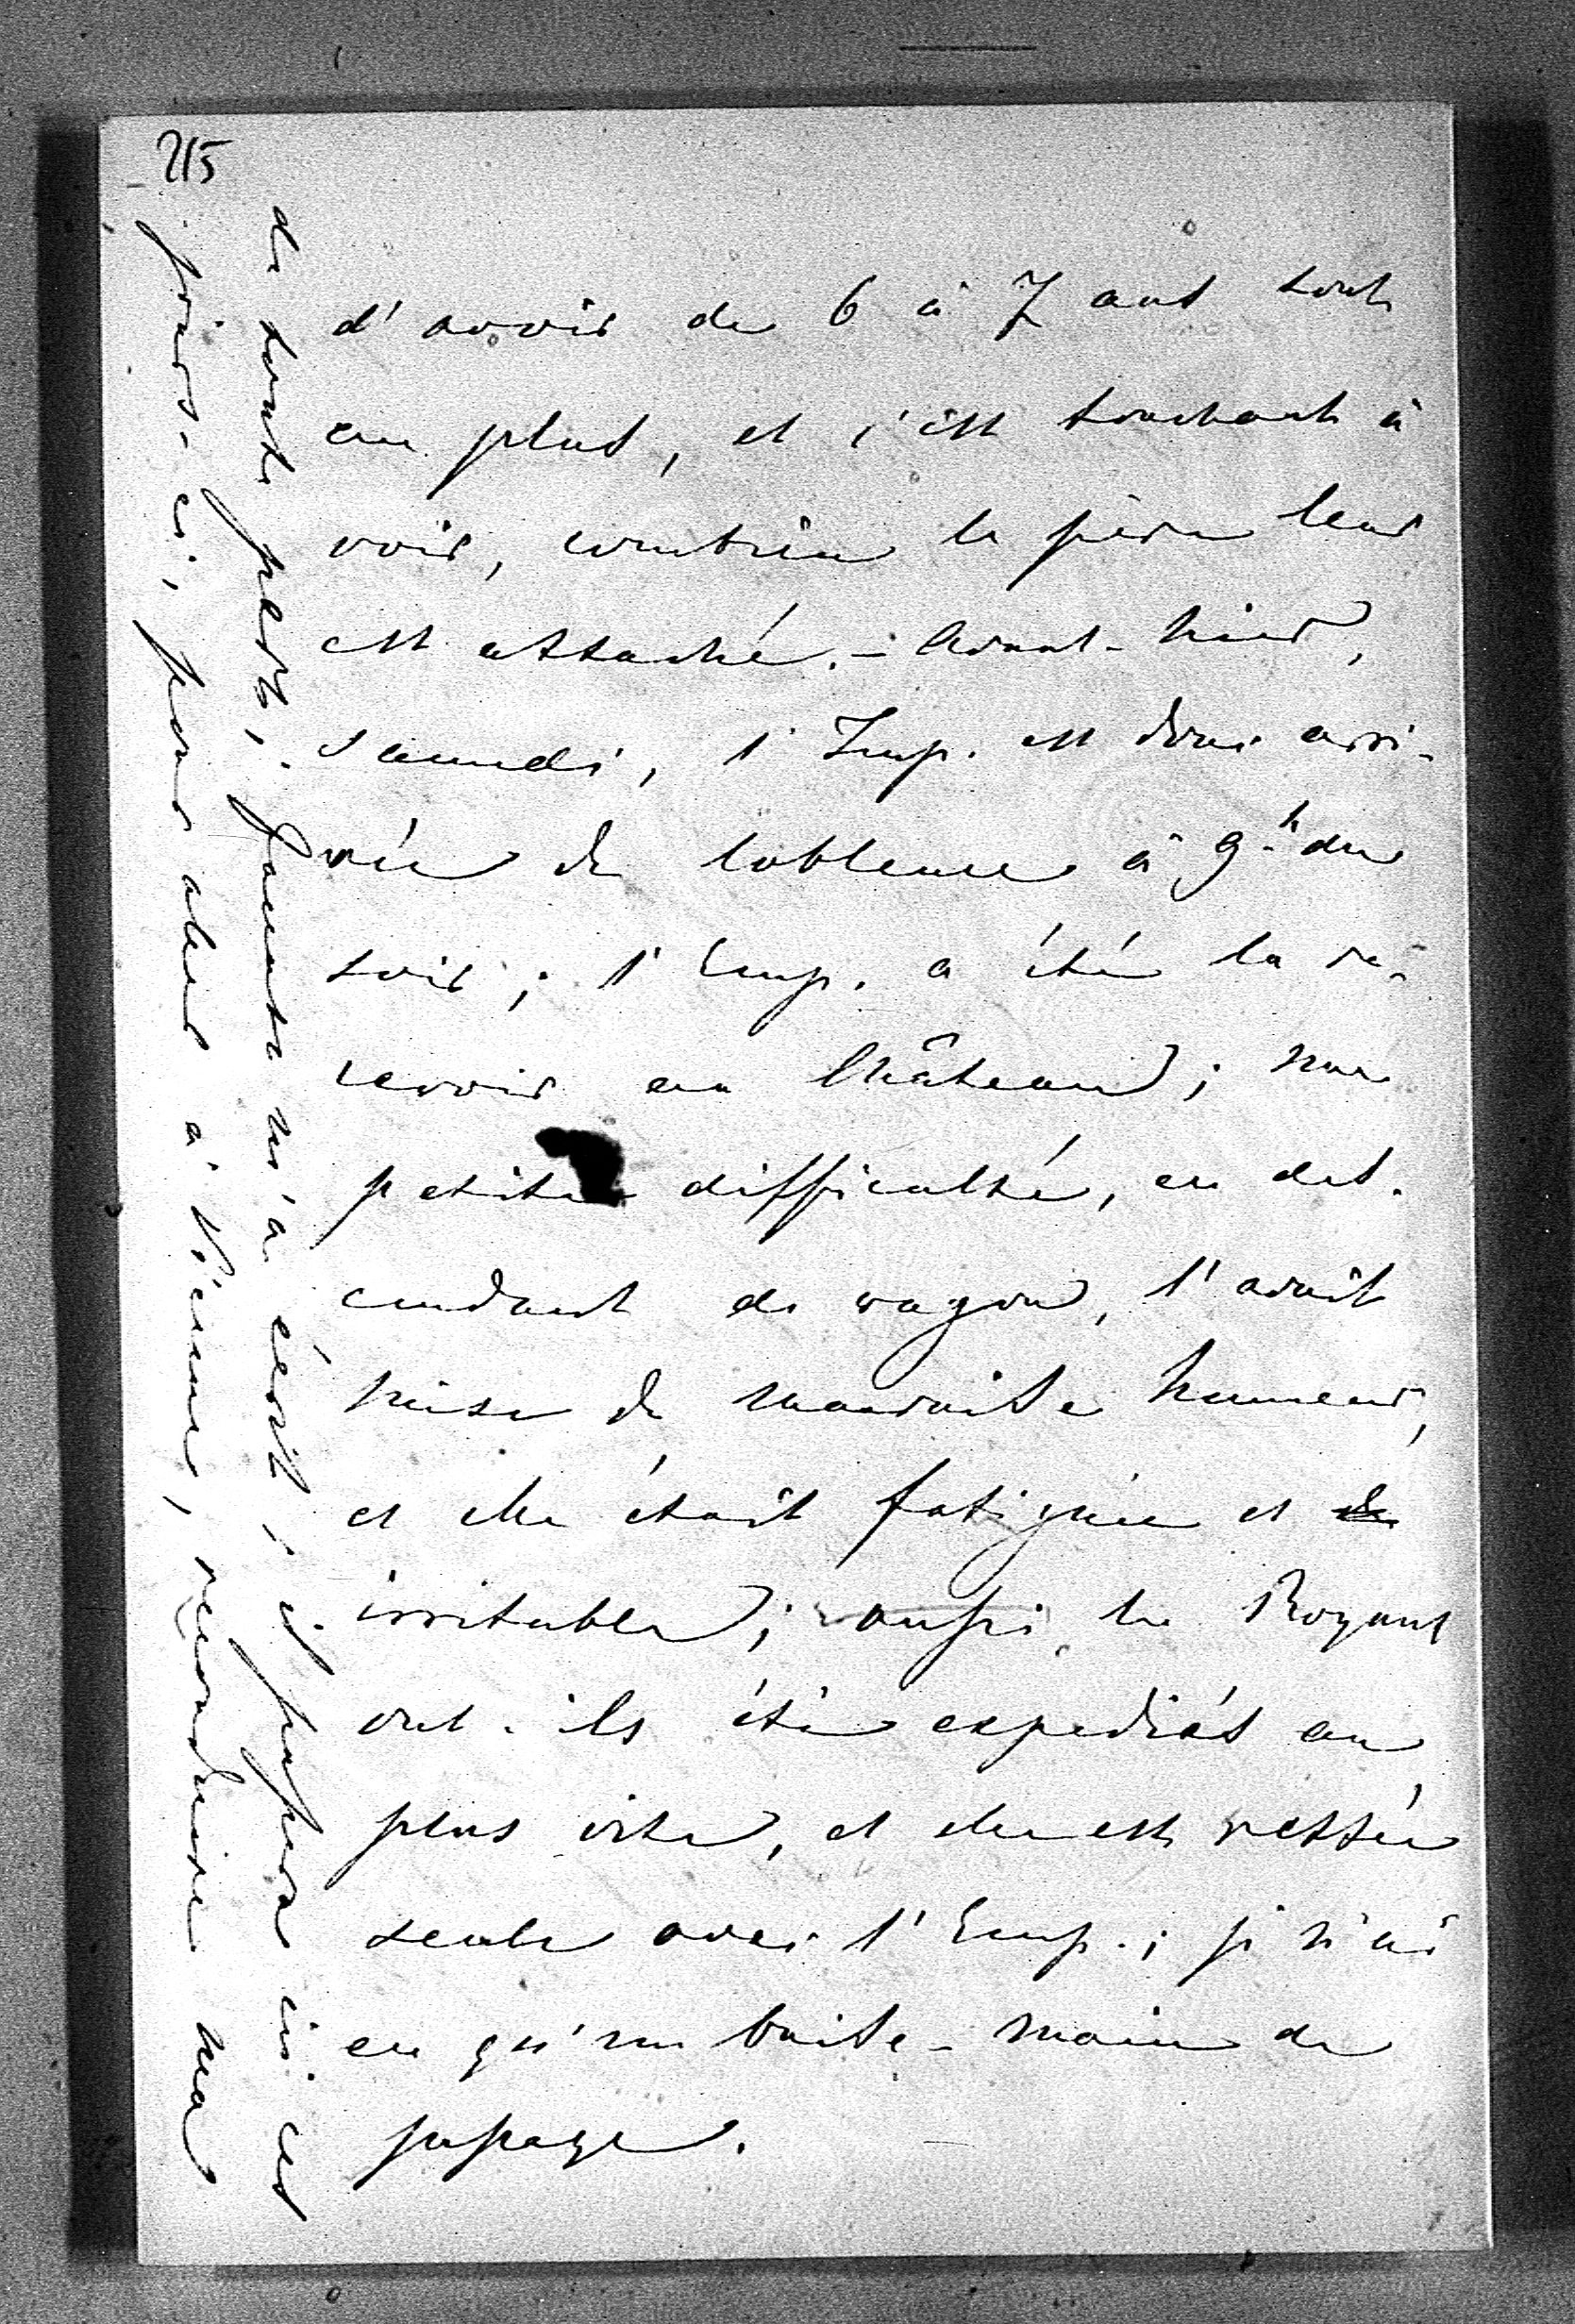 215
d'avoir de 6 à 7 ans tout
au plus, et c'est touchant à
voir, combien le père leur
est attaché. – Avant-hier,
samedi, l'Imp. est donc arri-
vée de Coblence à 9h du
soir; l'Emp. a été la re-
cevoir au Château; une
petite difficulté, en des-
cendant de wagon, l'avait
mise de mauvaise humeur,
et elle était fatiguée et
irritable; aussi les Royaux
ont-ils été expediés au
plus vite, et elle est restée
seule avec l'Emp.; je n'ai
eu qu'un baise-main de
passage.
de toute part, Jaunta m'a écrit, il passera ici ces
jours-ci, pour aller à Vienne, reconduire ma